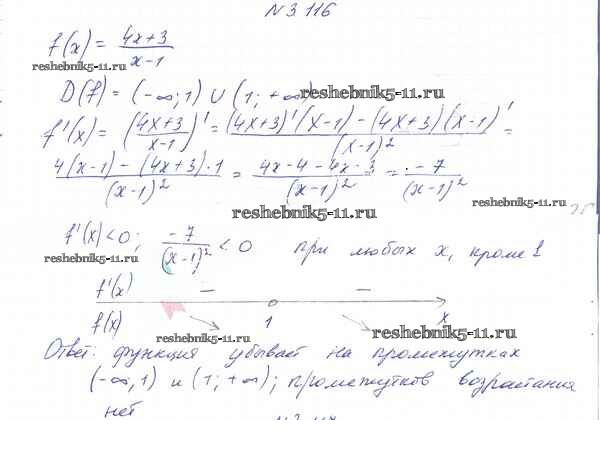 N3 116
f(x) = (4x+3)/(x-1)
reshebnik5-11.ru
D(f) = (-∞; 1) ∪ (1; +∞)
reshebnik5-11.ru
f'(x) = ((4x+3)/(x-1))' = ((4x+3)'(x-1) - (4x+3)(x-1)')/(x-1)² =
(4(x-1) - (4x+3)·1)/(x-1)² = (4x-4-4x-3)/(x-1)² = -7/(x-1)²
reshebnik5-11.ru
reshebnik5-11.ru
f'(x)<0; -7/(x-1)² < 0 при любых x, кроме 1
reshebnik5-11.ru
f'(x) − −
f(x) 1 x
reshebnik5-11.ru
reshebnik5-11.ru
Ответ: функция убывает на промежутках
(-∞, 1) и (1; +∞); промежутков возрастания
нет